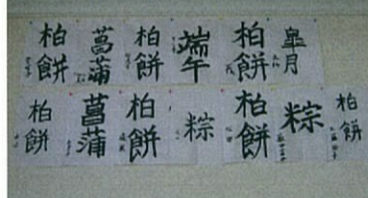 柏餅
菖蒲
柏餅
端午
柏餅
皐月
柏餅
菖蒲
柏餅
粽
柏餅
粽
柏餅